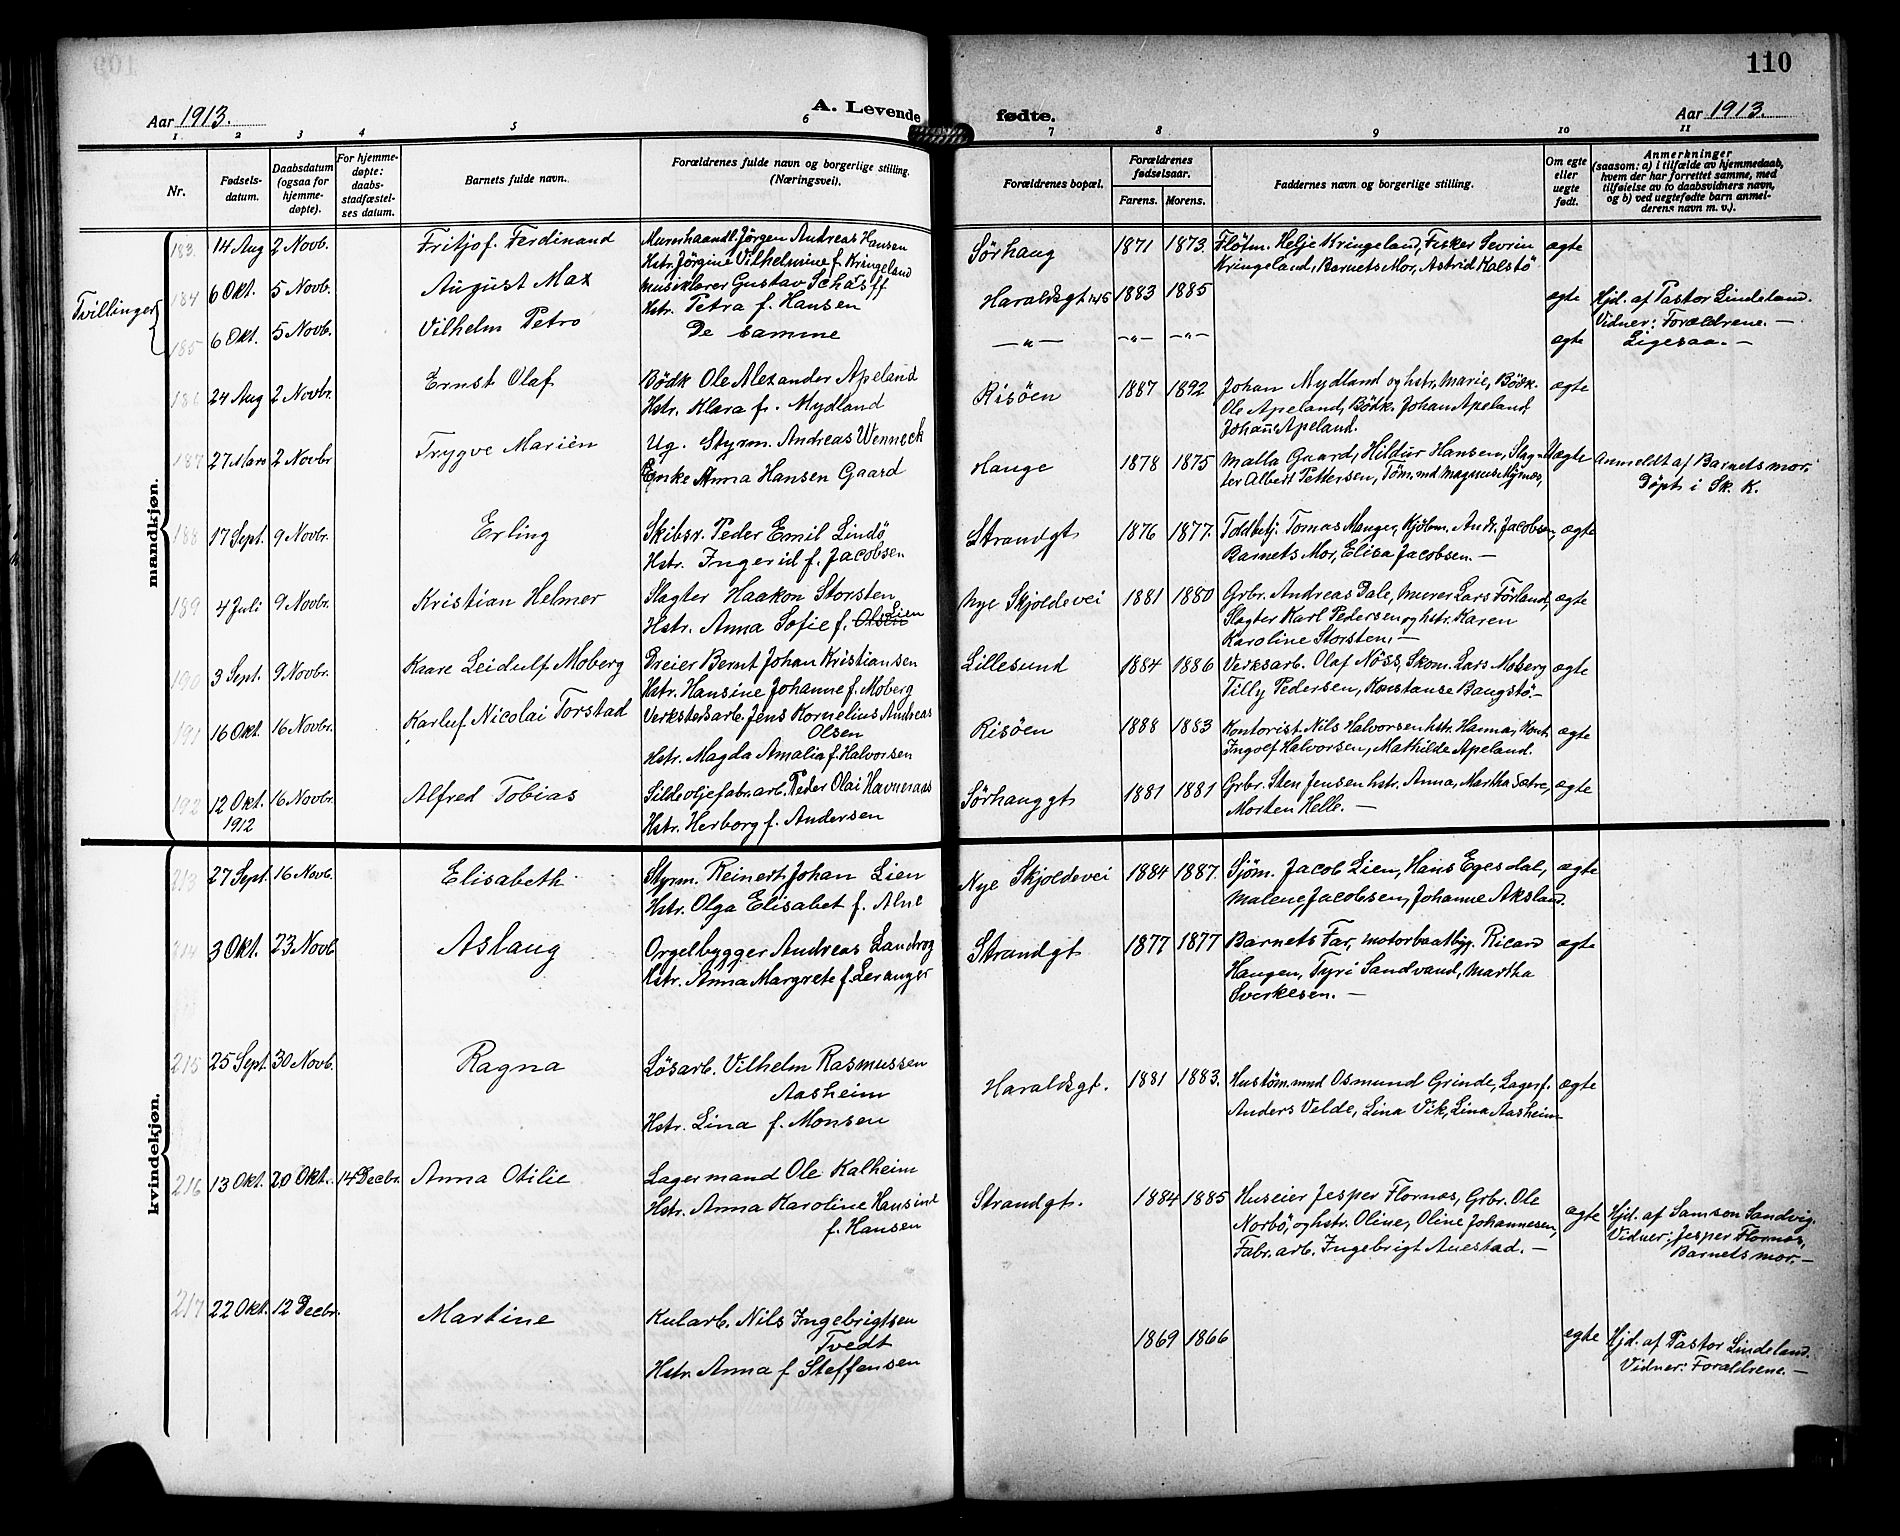 110
Aar 1913.
A. Levende
fødte.
Aar 1913.
1 2 3 4 5 6 7 8 9 10 11
Nr.
Fødsels-
datum.
Daabsdatum
(ogsaa for
hjemme-
døpte).
For hjemme-
døpte:
daabs-
stadfæstel-
ses datum.
Barnets fulde navn.
Forældrenes fulde navn og borgerlige stilling.
(Næringsvei).
Forældrenes bopæl.
Forældrenes
fødselsaar.
Farens. Morens.
Faddernes navn og borgerlige stilling.
Om egte
eller
uegte
født.
Anmerkninger
(saasom: a) i tilfælde av hjemmedaab,
hvem der har forrettet samme, med
tilføielse av to daabsvidners navn,
og b) ved uegtefødte barn anmel-
derens navn m. v.).
mandkjøn.
183. 14 Aug 2 Novb. Fritjof Ferdinand
Jørgen Andreas Hansen
Hstr. Jørgine Vilhelmine f. Kringeland
Sørhaug 1871 1873. Fløtm. Helje Kringeland, Fisker Sevrin
Kringeland, Barnets Mor, Astrid Kalstø
ægte
Tvillinger
184 6 Okt. 5 Novb. August Max
Musiklærer Gustav Schäff
Hstr. Petra f. Hansen
Haraldsgt 145 1883 1885
ægte Hjd. af Pastor Lindeland.
Vidner: Forældrene. —
185 6 Okt. 5 Novb. Vilhelm Petro
De samme
—"— —"— —"—
ægte Ligesaa. —
186 24 Aug 2 Novbr. Ernst Olaf
Bødk Ole Alexander Apeland
Hstr. Klara f. Mydland
Risøen 1887 1892 Johan Mydland og hstr. Marie, Bødk.
Ole Apeland, Bødk. Johan Apeland,
Johan Apeland.
ægte
187 27 Mars 2 Novbr Trygve Mariën
Ug. Styrm. Andreas Wenneck
Enke Anna Hansen Gaard
Hauge 1878 1875 Malla Gaard, Hildur Hansen, Slag-
ter Albert Pettersen, Tøm.md Magnus Mjønes,
Uægte Anmeldt af Barnets mor.
Døpt i Sk. K.
188 17 Sept. 9 Novbr. Erling
Skibsr. Peder Emil Lindø
Hstr. Ingerid f. Jacobsen
Strandgt 1876 1877. Toldbetj. Tomas Manger, Kjøbm. Andr. Jacobsen,
Barnets Mor, Elisa Jacobsen. —
ægte
189 4 Juli 9 Novbr. Kristian Helmer
Slagter Haakon Storsten
Hstr. Anna Sofie f. Olsen Lien
Nye Skjoldevei 1881 1880 Grbr. Andreas Dale, Murer Lars Førland,
Slagter Karl Pedersen og hstr. Karen
Karoline Storsten. —
ægte
190 3 Sept. 9 Novbr. Kaare Leidulf Moberg
Dreier Bernt Johan Kristiansen
Hstr. Hansine Johanne f. Moberg
Lillesund 1884 1886 Verksarb. Olaf Nøss, Skom. Lars Moberg
Tilly Pedersen, Konstanse Baugstø —
ægte
191 16 Okt. 16 Novbr. Karluf Nicolai Torstad
Verkstedsarb. Jens Kornelius Andreas
Olsen
Hstr. Magda Amalia f. Halvorsen
Risøen 1888 1883 Kontorist Nils Halvorsen hstr. Hanna, Kont.
Ingolf Halvorsen, Mathilde Apeland.
ægte
192 12 Okt. 16 Novbr. Alfred Tobias
1912
Sildeoljefabr. arb. Peder Olai Havneraas
Hstr. Herborg f. Andersen
Sørhauggt 1881 1881 Grbr. Sten Jensen hstr. Anna, Martha Sætre,
Morten Helle. —
ægte
kvindekjøn.
213 27 Sept. 16 Novb. Elisabeth
Styrm. Reinert Johan Lien
Hstr. Olga Elisabet f. Alne
Nye Skjoldevei 1884 1887. Sjøm. Jacob Lien, Hans Egesdal,
Malene Jacobsen, Johanne Aksland.
ægte
214 3 Okt. 23 Novb Aslaug
Orgelbygger Andreas Landrog
Hstr. Anna Margrete f. Leranger
Strandgt 1877 1877 Barnets Far, motorbaatbyg. Ricard
Haugen, Tyri Sandvand, Martha
Sverkesen. —
ægte
215 25 Sept. 30 Novb. Ragna
Løsarb. Vilhelm Rasmussen
Aasheim
Hstr. Lina f. Monsen
Haraldsgt. 1881 1883. Hustøm.md Osmund Grinde, Lagerf.
Anders Velde, Lina Vik, Lina Aasheim
ægte
216 13 Okt. 20 Okt. 14 Decbr. Anna Otilie
Lagermand Ole Kalheim
Hstr. Anna Karoline Hansine
f. Hansen
Strandgt. 1884 1885 Huseier Jesper Flornes, Grbr. Ole
Norbø, og hstr. Oline, Oline Johannesen,
Fabr. arb. Ingebrigt Auestad. —
ægte Hjd. af Samson Sandvig.
Vidner: Jesper Flornes,
Barnets mor. —
217 22 Okt. 12 Decbr. Martine
Kularb. Nils Ingebrigtsen
Tvedt
Hstr. Anna f Steffensen
1869 1866
egte Hjd. af Pastor Lindeland.
Vidner: Forældrene. —